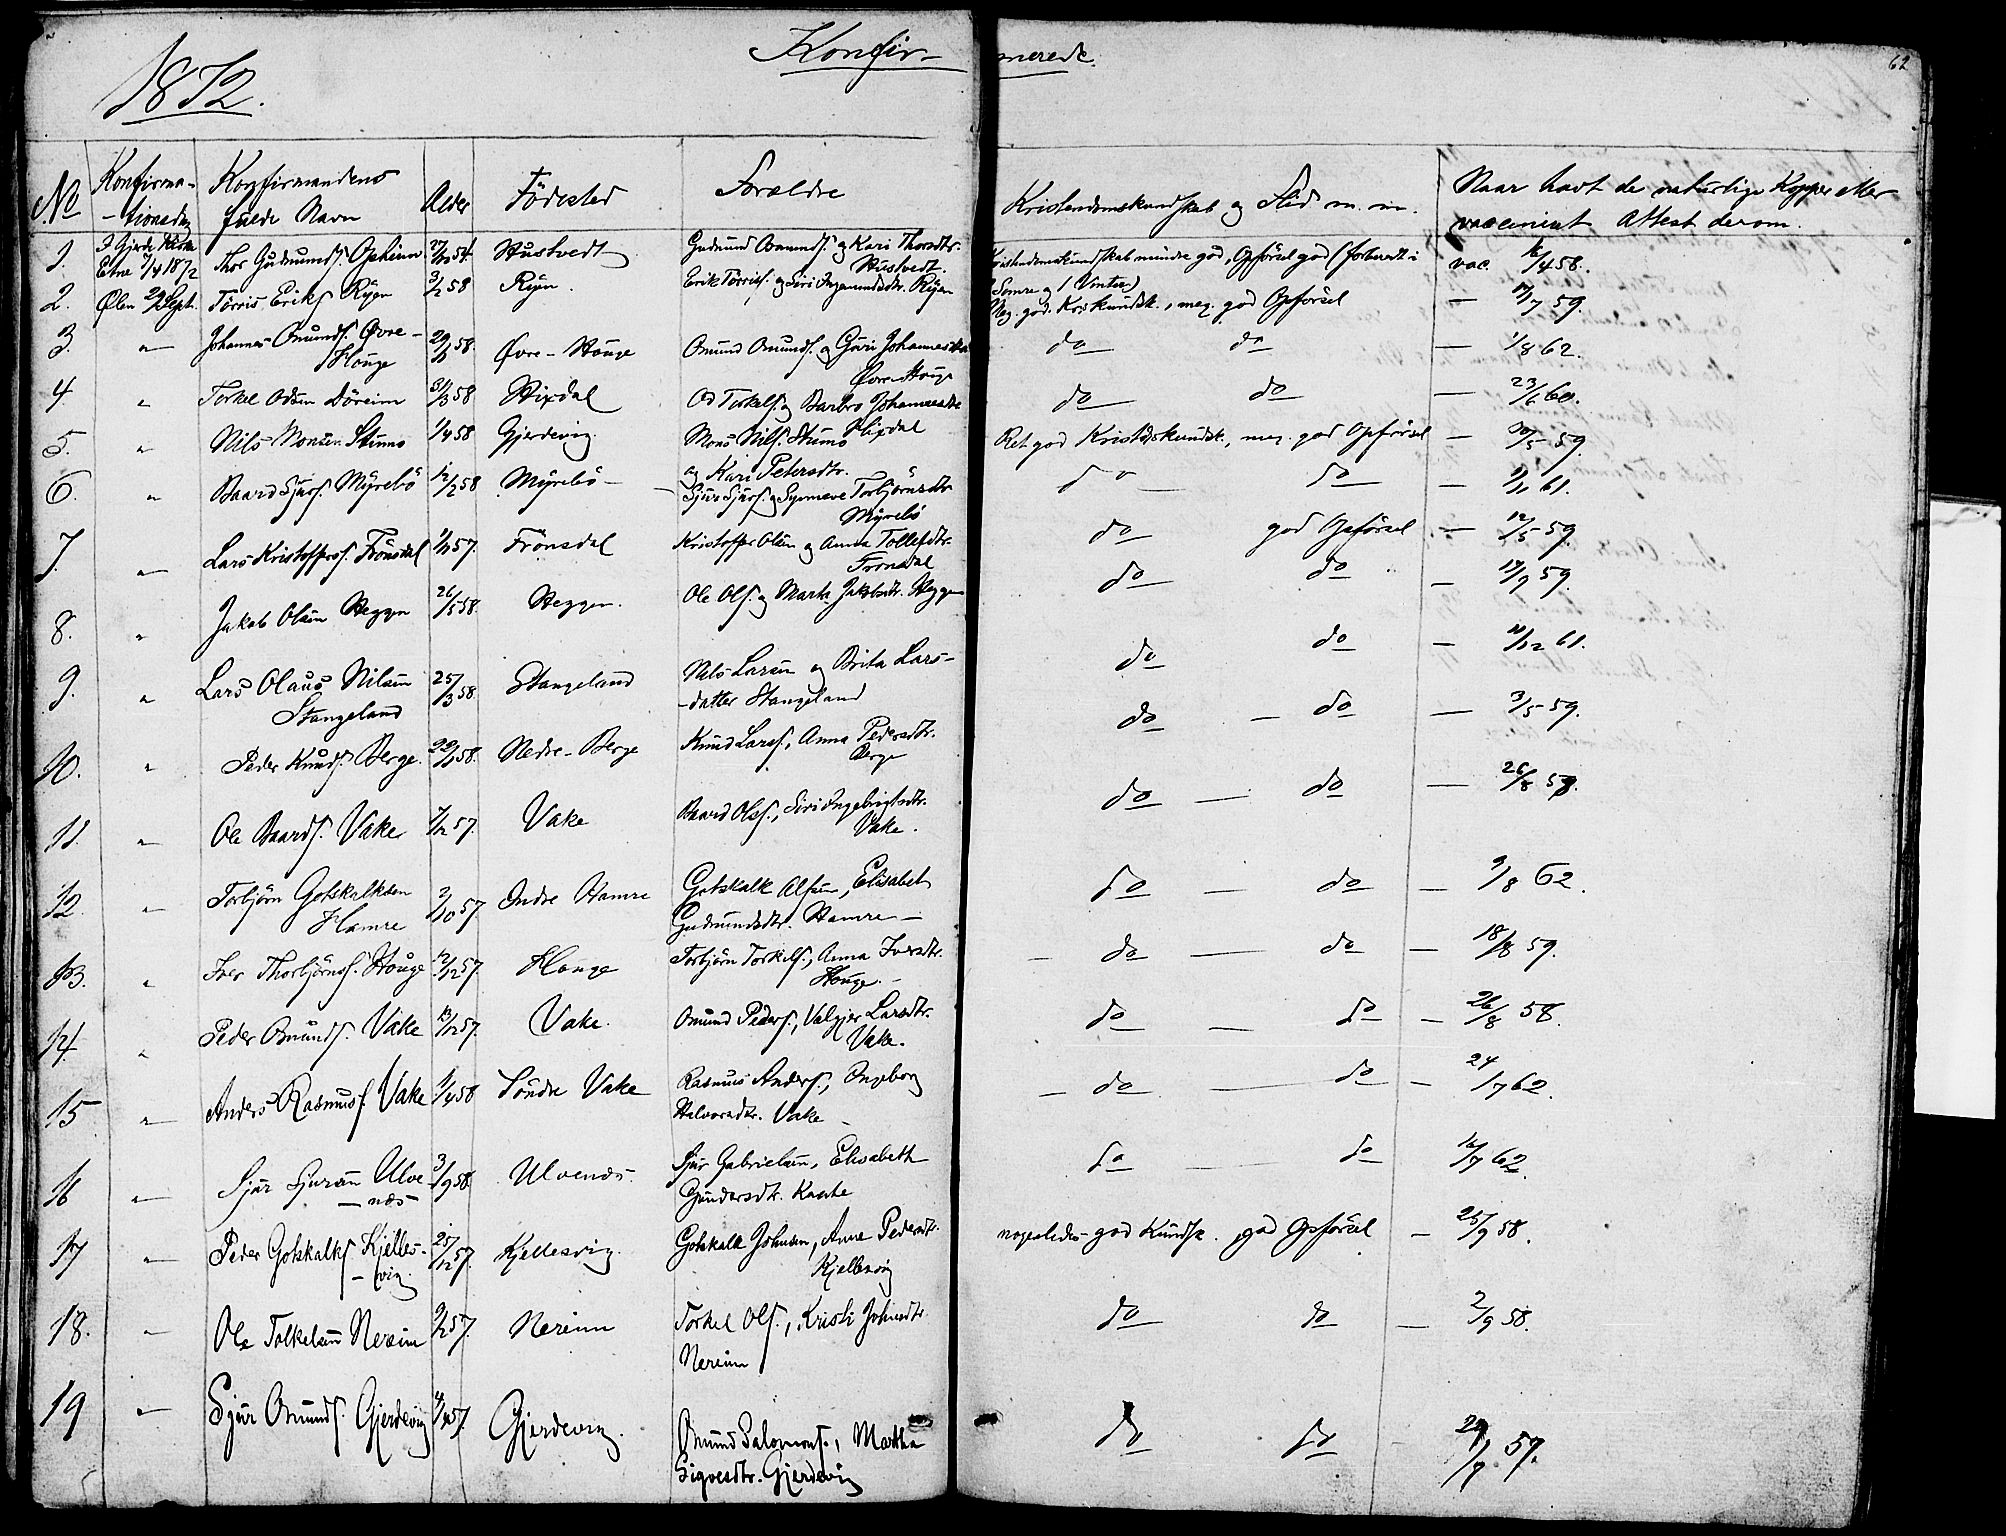 1872.
Konfir- merede.
62
No Konfirma- tionsdag Konfirmandens fulde Navn Alder Födested Forældre Kristendomskundskab og Flid m. m. Naar havt de naturlige Kopper eller vaccineret Attest derom.
1. I Gjerde Kirke Etne 7/4 1872 Thor Gudmunds. Opheim 54 Hustvedt Gudmund Osmunds. og Kari Thorsdtr. Hustvedt. Kristendomskundskab mindre god, Opförsel god (forberedt i 1 Somre og 1 Vinter) vac. 16/4 58.
2. Ølen 29 Sept. Törris Eriks. Ryen 3/2 58 Ryen Erik Törriss. og Siri Ingemundsdtr. Ryen Meg. god Krskundsk., meg. god Opförsel — 17/7 59.
3. " Johannes Omunds. Övre-Houge 29/ 58. Övre-Houge Omund Omunds. og Guri Johannesdtr Övre-Houge do do — 1/8 62.
4. " Torkel Odsen Döreim 31/3 58 Hixdal Od Torkels. og Barbro Johannesdtr Hixdal do do — 23/6 60.
5. " Nils Monsen Stumo 1/4 58 Gjerdevig. Mons Nils. Stumo og Kari Petersdtr. Ret god Kristdskundsk., meg. god Opförsel — 30/5 59
6. " Baard Sjurs. Myrebö 12/2 58 Myrebö — Sjur Sjurs. og Synneve Torbjörnsdtr Myrebö do do — 9/11 61.
7. " Lars Kristoffers. Frönsdal 57. Frönsdal Kristoffer Olsen og Anna Tollefsdtr. Frönsdal do god Opförsel — 12/5 59.
8. " Jakob Olsen Heggen 26/5 58. Heggen. Ole Ols. og Marta Jakobsdtr. Heggen do do — 19/9 59.
9. " Lars Olaus Nilsen Stangeland 25/3 58. Stangeland Nils Larsen og Brita Lars- -datter Stangeland do do — 11/12 61.
10. " Peder Knuds. Berge. 58. Nedre-Berge Knud Larss., Anna Pedersdtr. Berge do — do — 3/5 59.
11. " Ole Baards. Vake 7/12 57. Vake Baard Olss., Siri Ingebrigtsdtr. Vake. do — do — 26/8 58.
12. " Torbjörn Gotskalksen Hamre 2/10 57 Indre Hamre Gotskalk Alfsen, Elisabet Gudmundsdtr. Hamre — do — do — 9/8 62.
13. " Iver Thorbjörnss. Houge 12/12 57. Houge Torbjörn Torkels., Anna Iversdtr. Houge. — — do — do — 18/8 59.
14. " Peder Omunds. Vake 13/12 57. Vake. Omund Peders., Valgjer Larsdtr. Vake. do — do — 26/8 58.
15 " Anders Rasmuss. Vake 4/4 58 Söndre Vake Rasmus Anders., Ingeborg Halvorsdtr. Vake — — do — do — 24/7 62.
16 " Sjur Sjursen Ulve- -næs 3/9 58. Ulvenæs. Sjur Gabrielsen, Elisabeth Gundersdtr. do — do 16/7 62
17 " Peder Gotskalks. Kjelles- -vig. 25/12 57. Kjellesvig. Gotskalk Johnsen, Anne Pedersdtr. Kjellesvig nogenledes god Kundsk., god Opförsel — 25/9 58.
18. " Ole Tolkelsen Nereim 57. Nereim Torkel Ols., Kristi Johnsdtr. Nereim do do — 2/9 58.
19 " Sjur Omunds. Gjerdevig 57. Gjerdevig. Omund Salomons., Martha Sigvesdtr. Gjerdevig do do — 29/9 57.